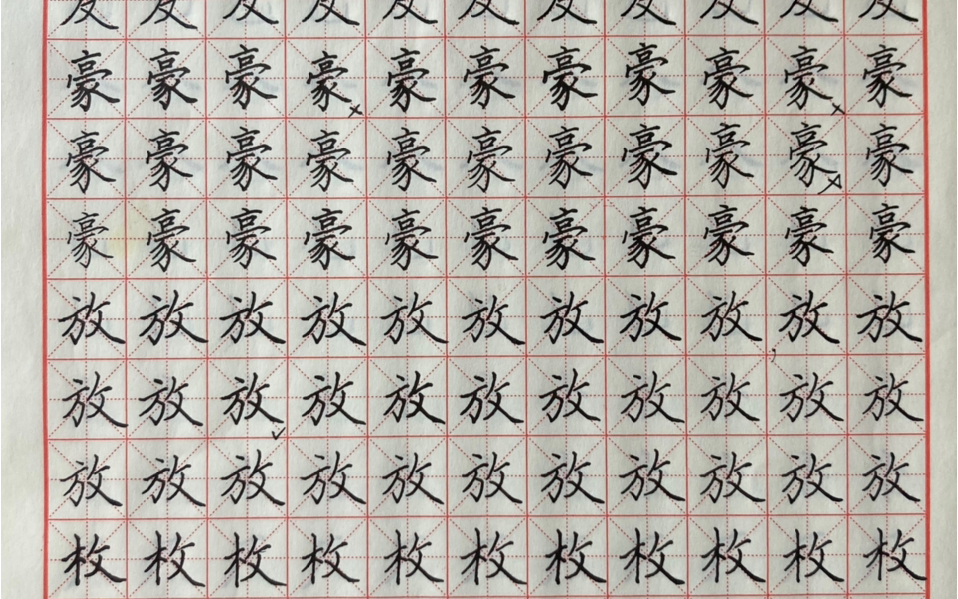 豪豪豪豪豪豪豪豪豪豪豪
豪豪豪豪豪豪豪豪豪豪豪
豪豪豪豪豪豪豪豪豪豪豪
放放放放放放放放放放放
放放放放放放放放放放放
放放放放放放放放放放放
枚枚枚枚枚枚枚枚枚枚枚